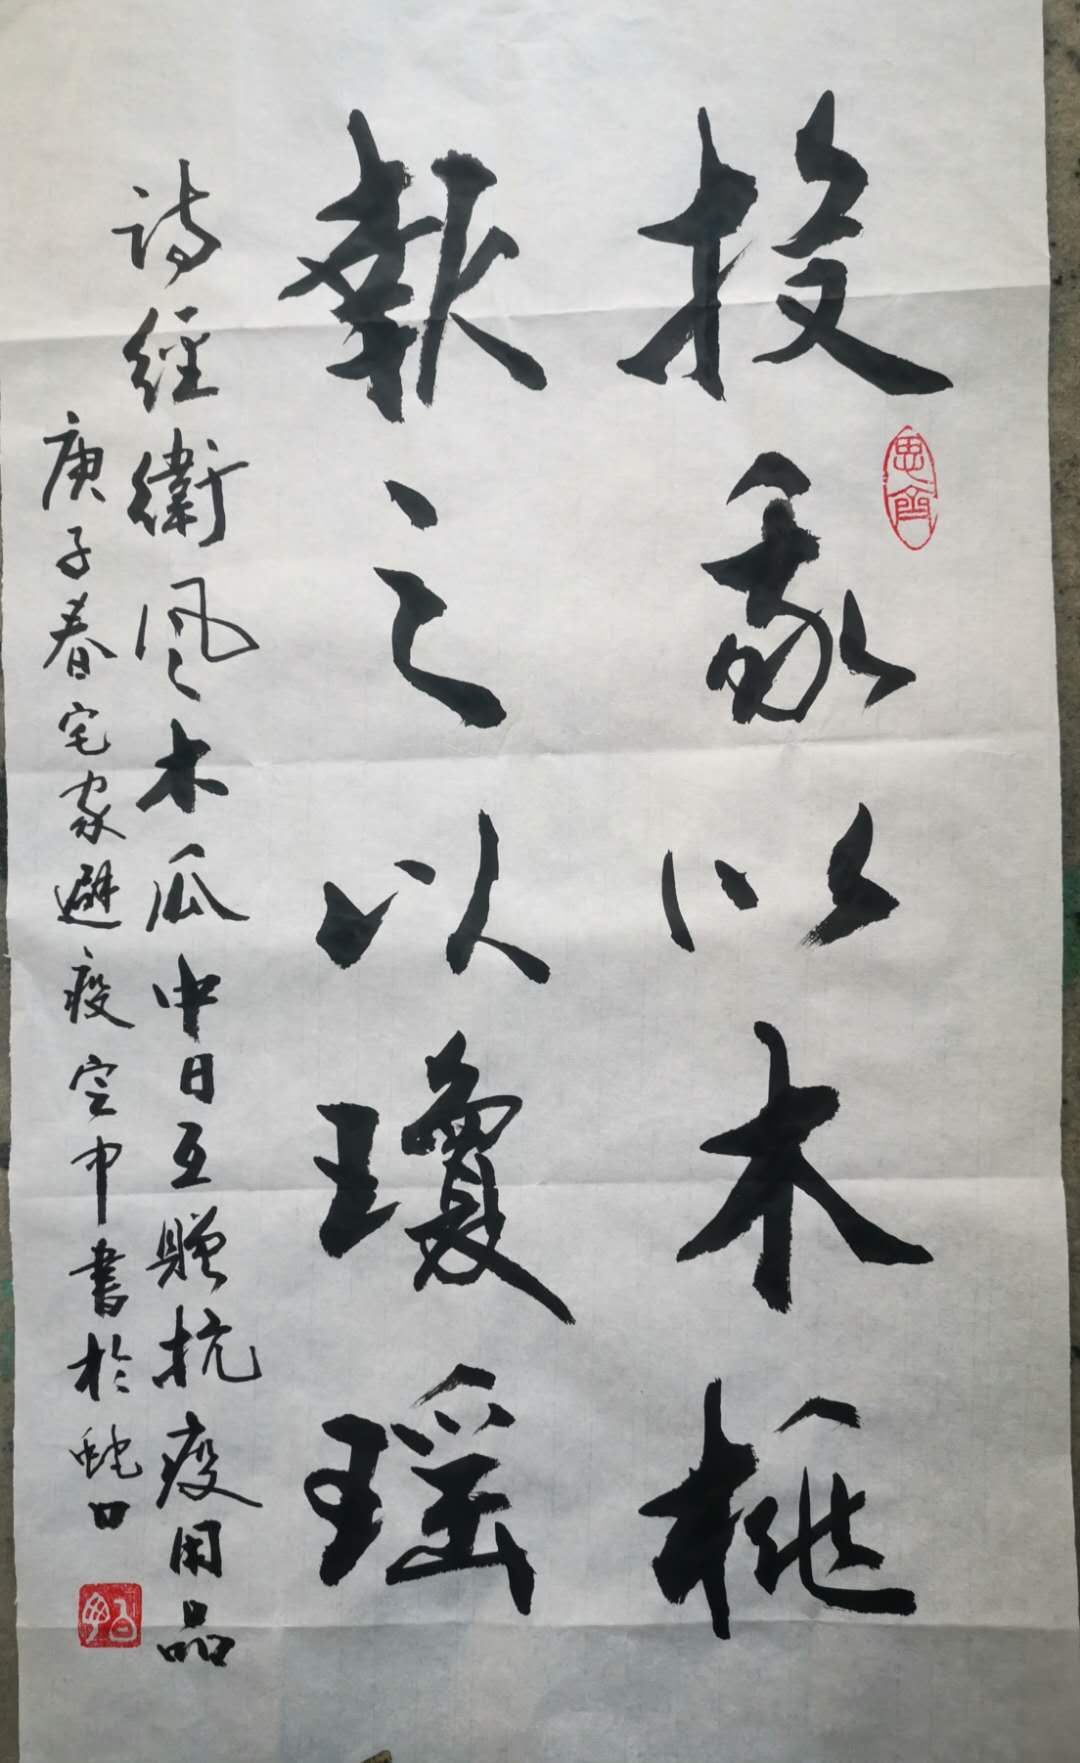 投我以木桃
報之以瓊瑶
詩經衛風之木瓜中日互贈抗疫用品
庚子春宅家避疫空中書於蛇口
思齊